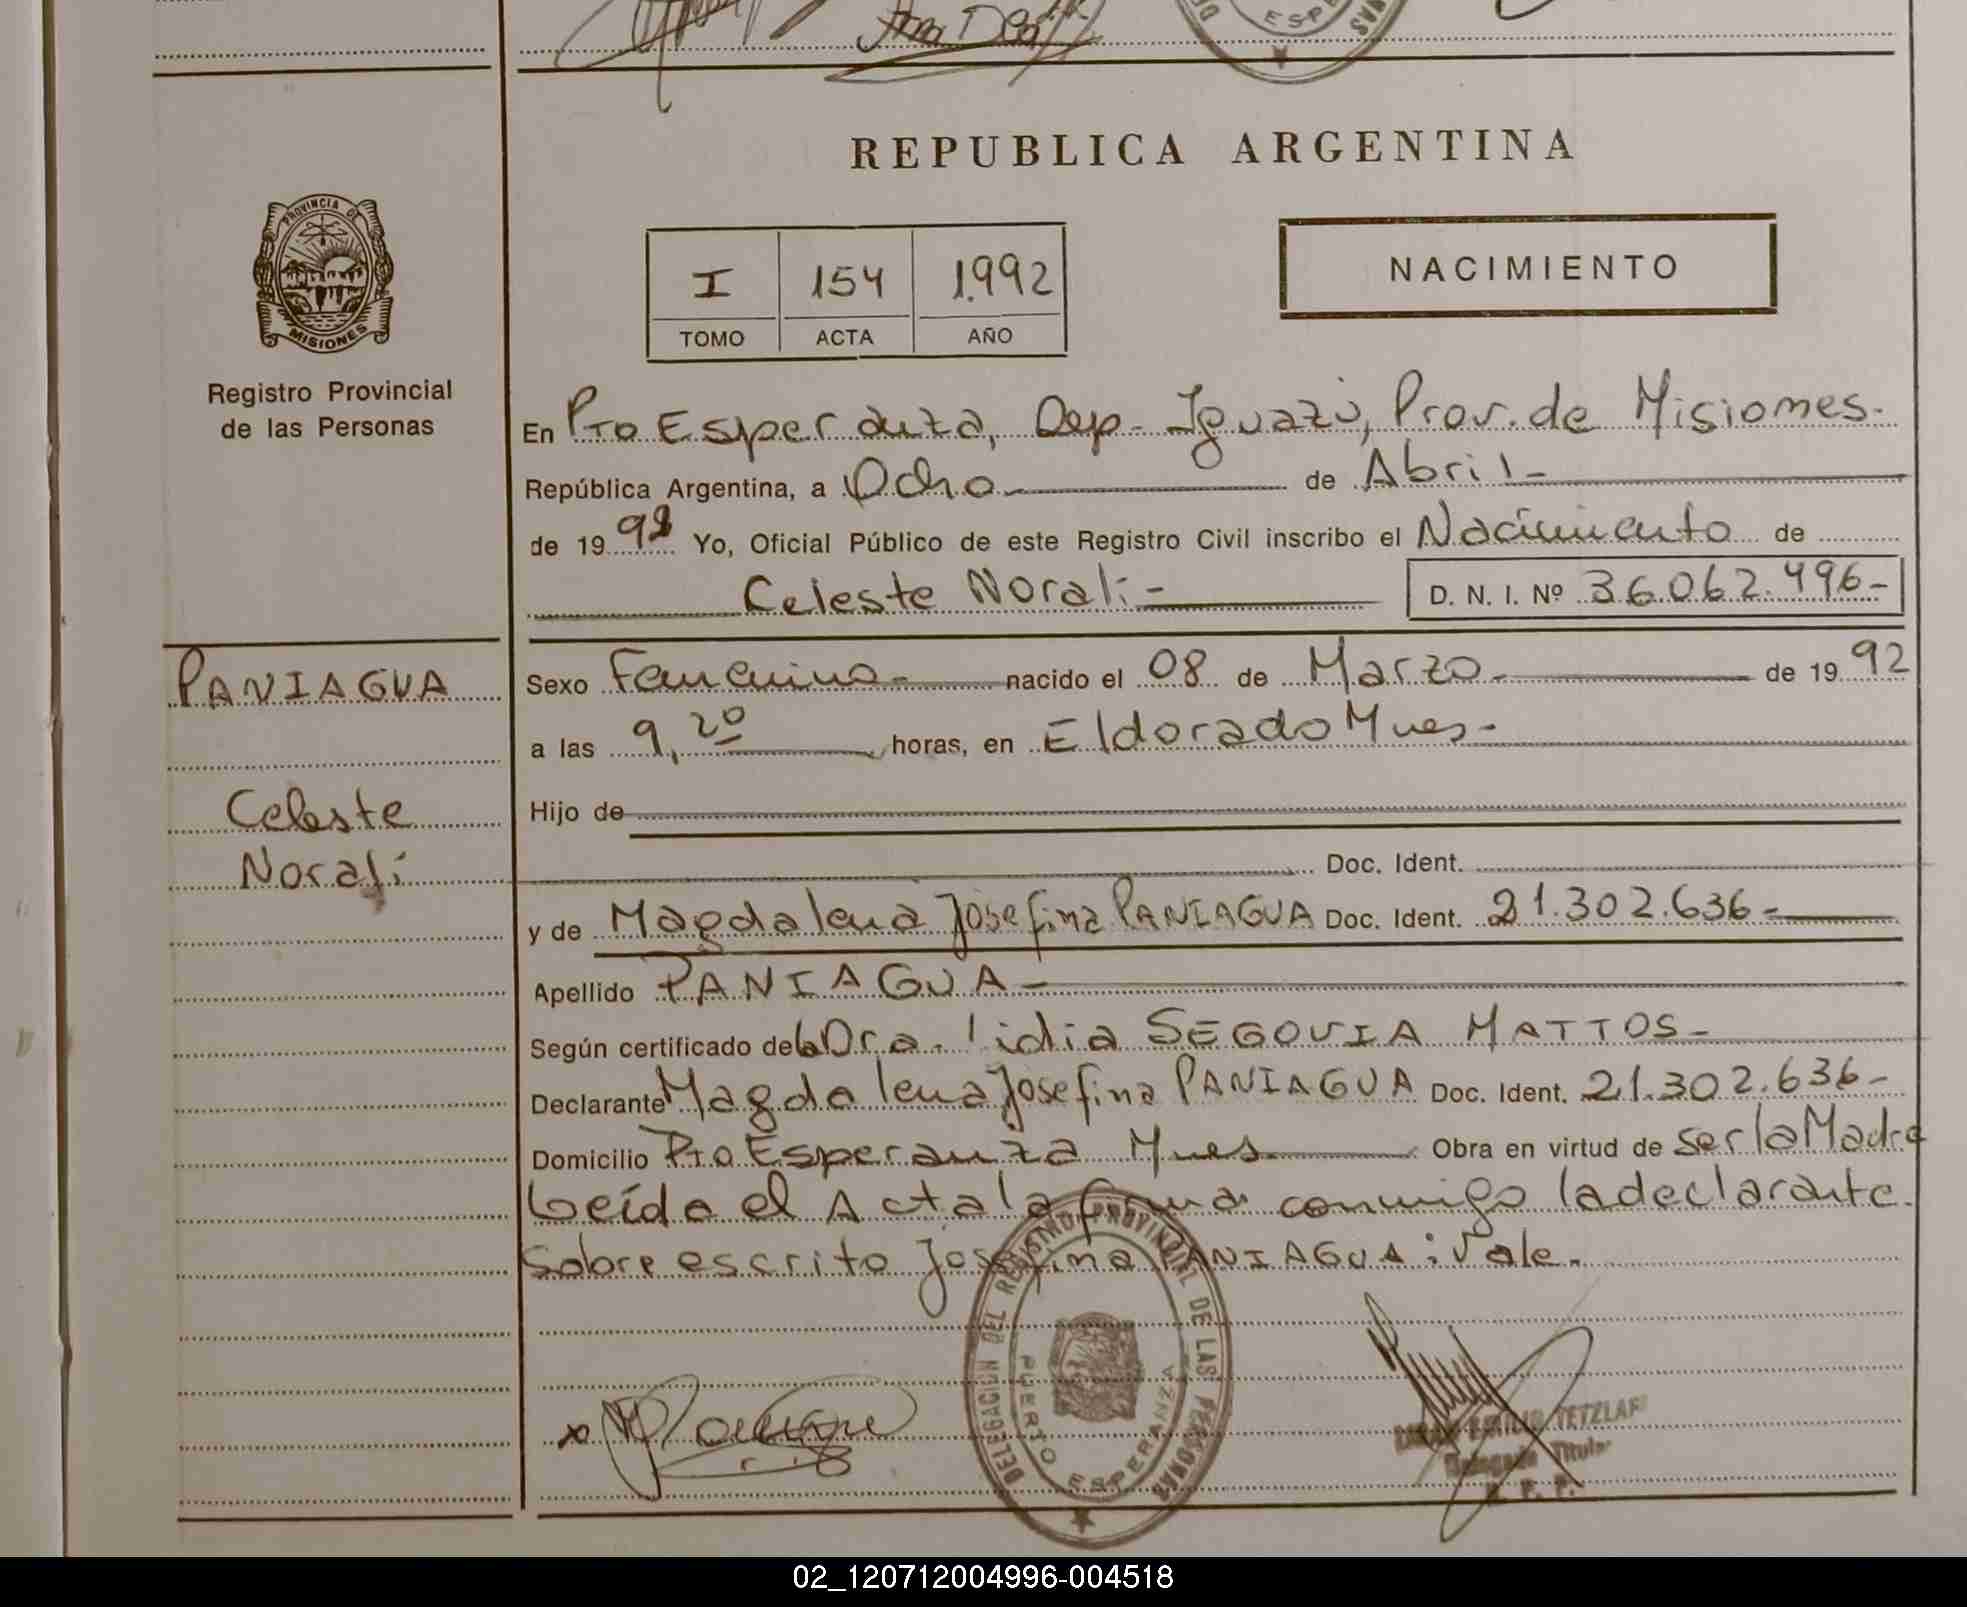 REPUBLICA ARGENTINA
PROVINCIA DE
MISIONES
I 154 1.992
TOMO ACTA AÑO
NACIMIENTO
Registro Provincial
de las Personas
En Pto Esperanza, Dep. Iguazú, Prov. de Misiones.
República Argentina, a Ocho de Abril
de 1992 Yo, Oficial Público de este Registro Civil inscribo el Nacimiento de
Celeste Norali D. N. I. Nº 36.062.496
PANIAGUA
Celeste
Norali
Sexo Femenino nacido el 08 de Marzo de 1992
a las 9,20 horas, en Eldorado Mnes
Hijo de
Doc. Ident.
y de Magdalena Josefina PANIAGUA Doc. Ident. 21.302.636
Apellido PANIAGUA
Según certificado de la Dra. Lidia SEGOVIA MATTOS
Declarante Magdalena Josefina PANIAGUA Doc. Ident. 21.302.636
Domicilio Pto Esperanza Mnes Obra en virtud de ser la Madre
Leída el Acta la firma conmigo la declarante.
Sobre escrito Josefina PANIAGUA: Vale.
DELEGACION DEL REGISTRO PROVINCIAL DE LAS PERSONAS
PUERTO ESPERANZA
EMILIO TETZLAF
Delegado Titular
R. P. P.
02_120712004996-004518